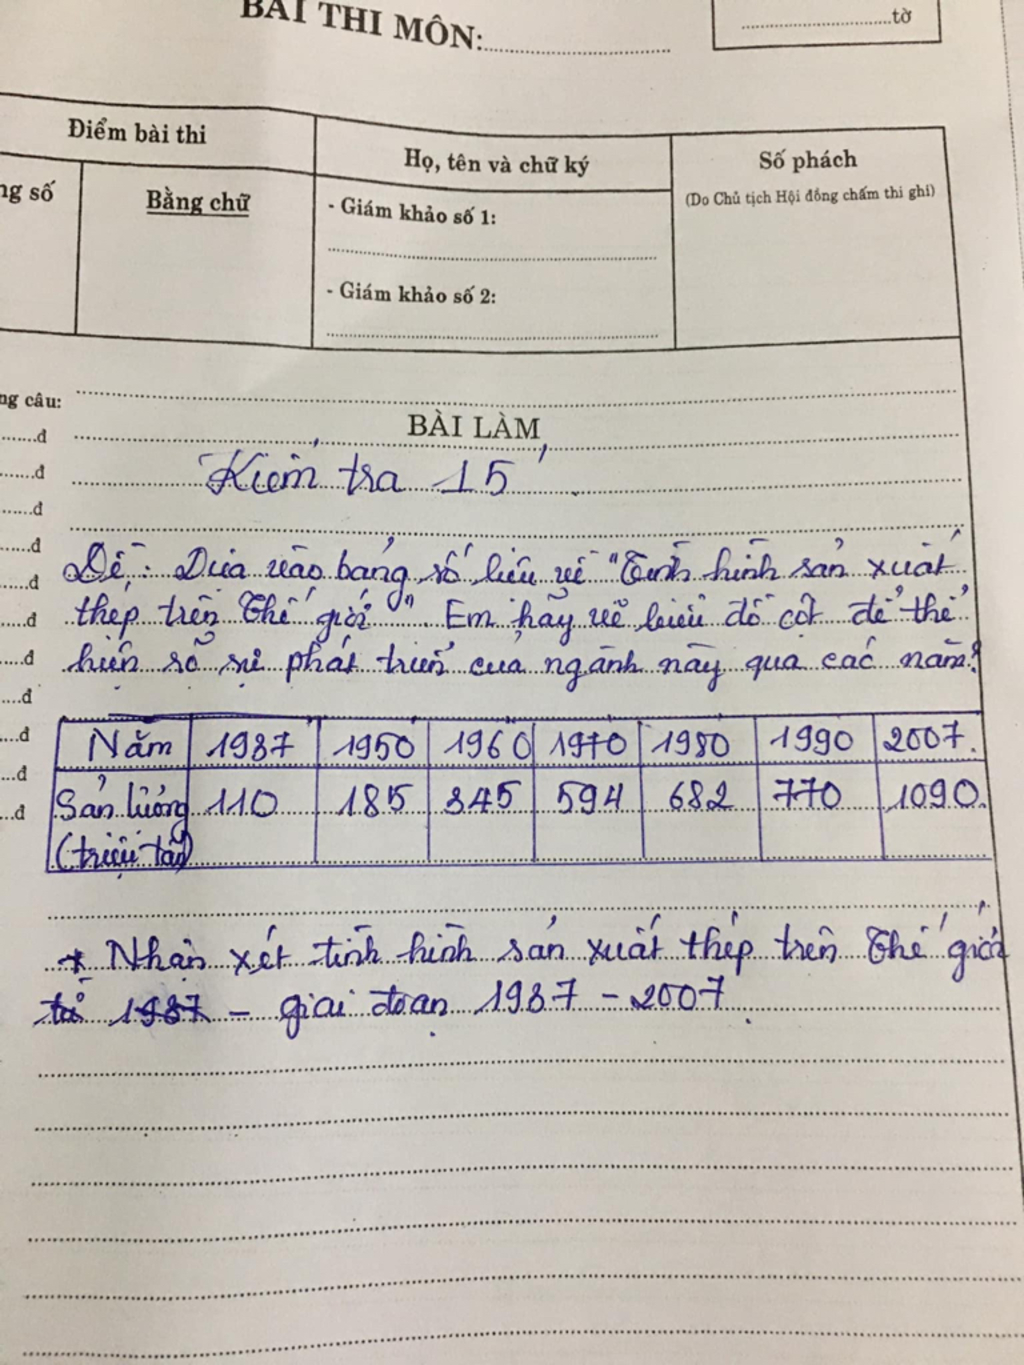 BÀI THI MÔN:
tờ
Điểm bài thi
Họ, tên và chữ ký
Số phách
(Do Chủ tịch Hội đồng chấm thi ghi)
ng số
Bằng chữ
- Giám khảo số 1:
- Giám khảo số 2:
ng câu:
BÀI LÀM
đ
đ
đ
đ
đ
đ
đ
đ
đ
đ
đ
Kiểm tra 15'
Đề: Dựa vào bảng số liệu về "Tình hình sản xuất
thép trên Thế giới". Em hãy vẽ biểu đồ cột để thể
hiện số sự phát triển của ngành này qua các năm?
Năm 1937 1950 1960 1970 1980 1990 2007
Sản lượng 110 185 345 594 682 770 1090
(triệu tấn)
* Nhận xét tình hình sản xuất thép trên Thế giới
từ 1937 - giai đoạn 1937 - 2007